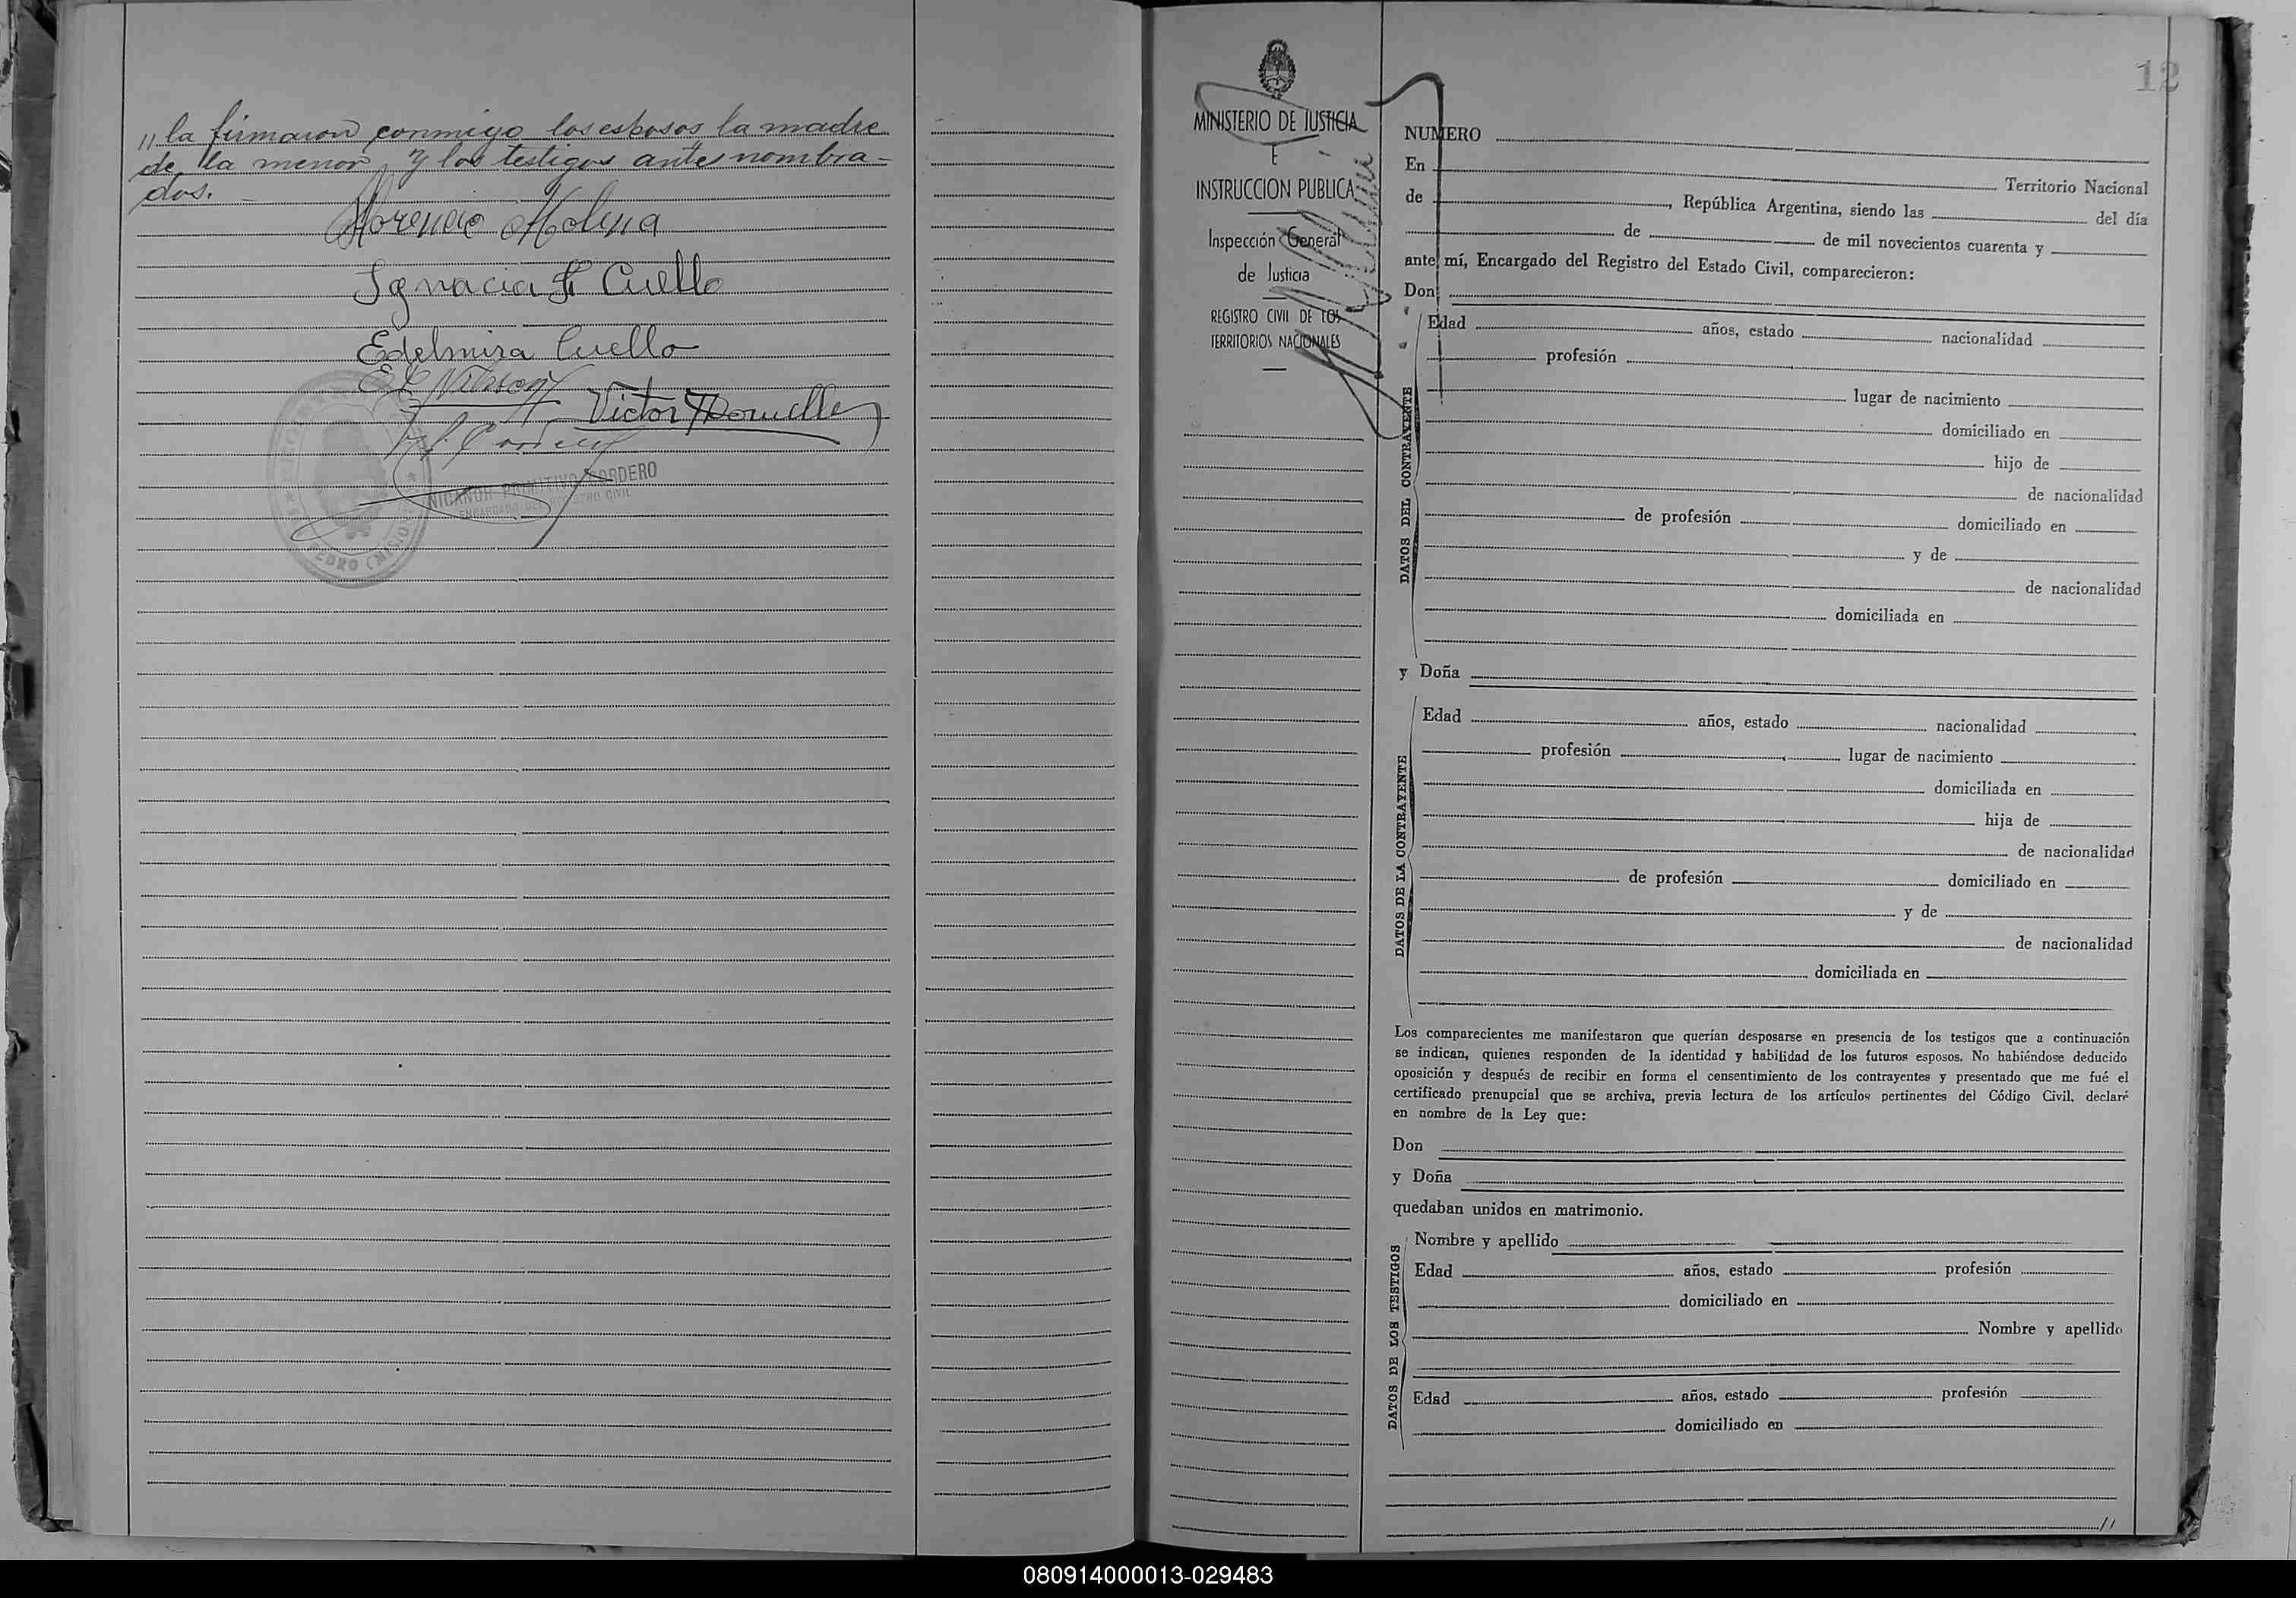 // la firmaron conmigo los esposos la madre
de la menor, y los testigos antes nombra-
dos. -
Florencio Molina
Ignacia F Cuello
Edelmira Cuello
Victor
NICANOR PRIMITIVO CORDERO
ENCARGADO DEL REGISTRO CIVIL
PEDRO (MISIO
12
MINISTERIO DE JUSTICIA
E
INSTRUCCION PUBLICA
Inspección General
de Justicia
REGISTRO CIVIL DE LOS
TERRITORIOS NACIONALES
NUMERO
En Territorio Nacional
de , República Argentina, siendo las del día
de de mil novecientos cuarenta y
ante mí, Encargado del Registro del Estado Civil, comparecieron:
Don
DATOS DEL CONTRAYENTE
Edad años, estado nacionalidad
profesión
lugar de nacimiento
domiciliado en
hijo de
de nacionalidad
de profesión domiciliado en
y de
de nacionalidad
domiciliada en
y Doña
DATOS DE LA CONTRAYENTE
Edad años, estado nacionalidad
profesión lugar de nacimiento
domiciliada en
hija de
de nacionalidad
de profesión domiciliado en
y de
de nacionalidad
domiciliada en
Los comparecientes me manifestaron que querían desposarse en presencia de los testigos que a continuación
se indican, quienes responden de la identidad y habilidad de los futuros esposos. No habiéndose deducido
oposición y después de recibir en forma el consentimiento de los contrayentes y presentado que me fué el
certificado prenupcial que se archiva, previa lectura de los artículos pertinentes del Código Civil, declaré
en nombre de la Ley que:
Don
y Doña
quedaban unidos en matrimonio.
DATOS DE LOS TESTIGOS
Nombre y apellido
Edad años, estado profesión
domiciliado en
Nombre y apellido
Edad años, estado profesión
domiciliado en
//
080914000013-029483